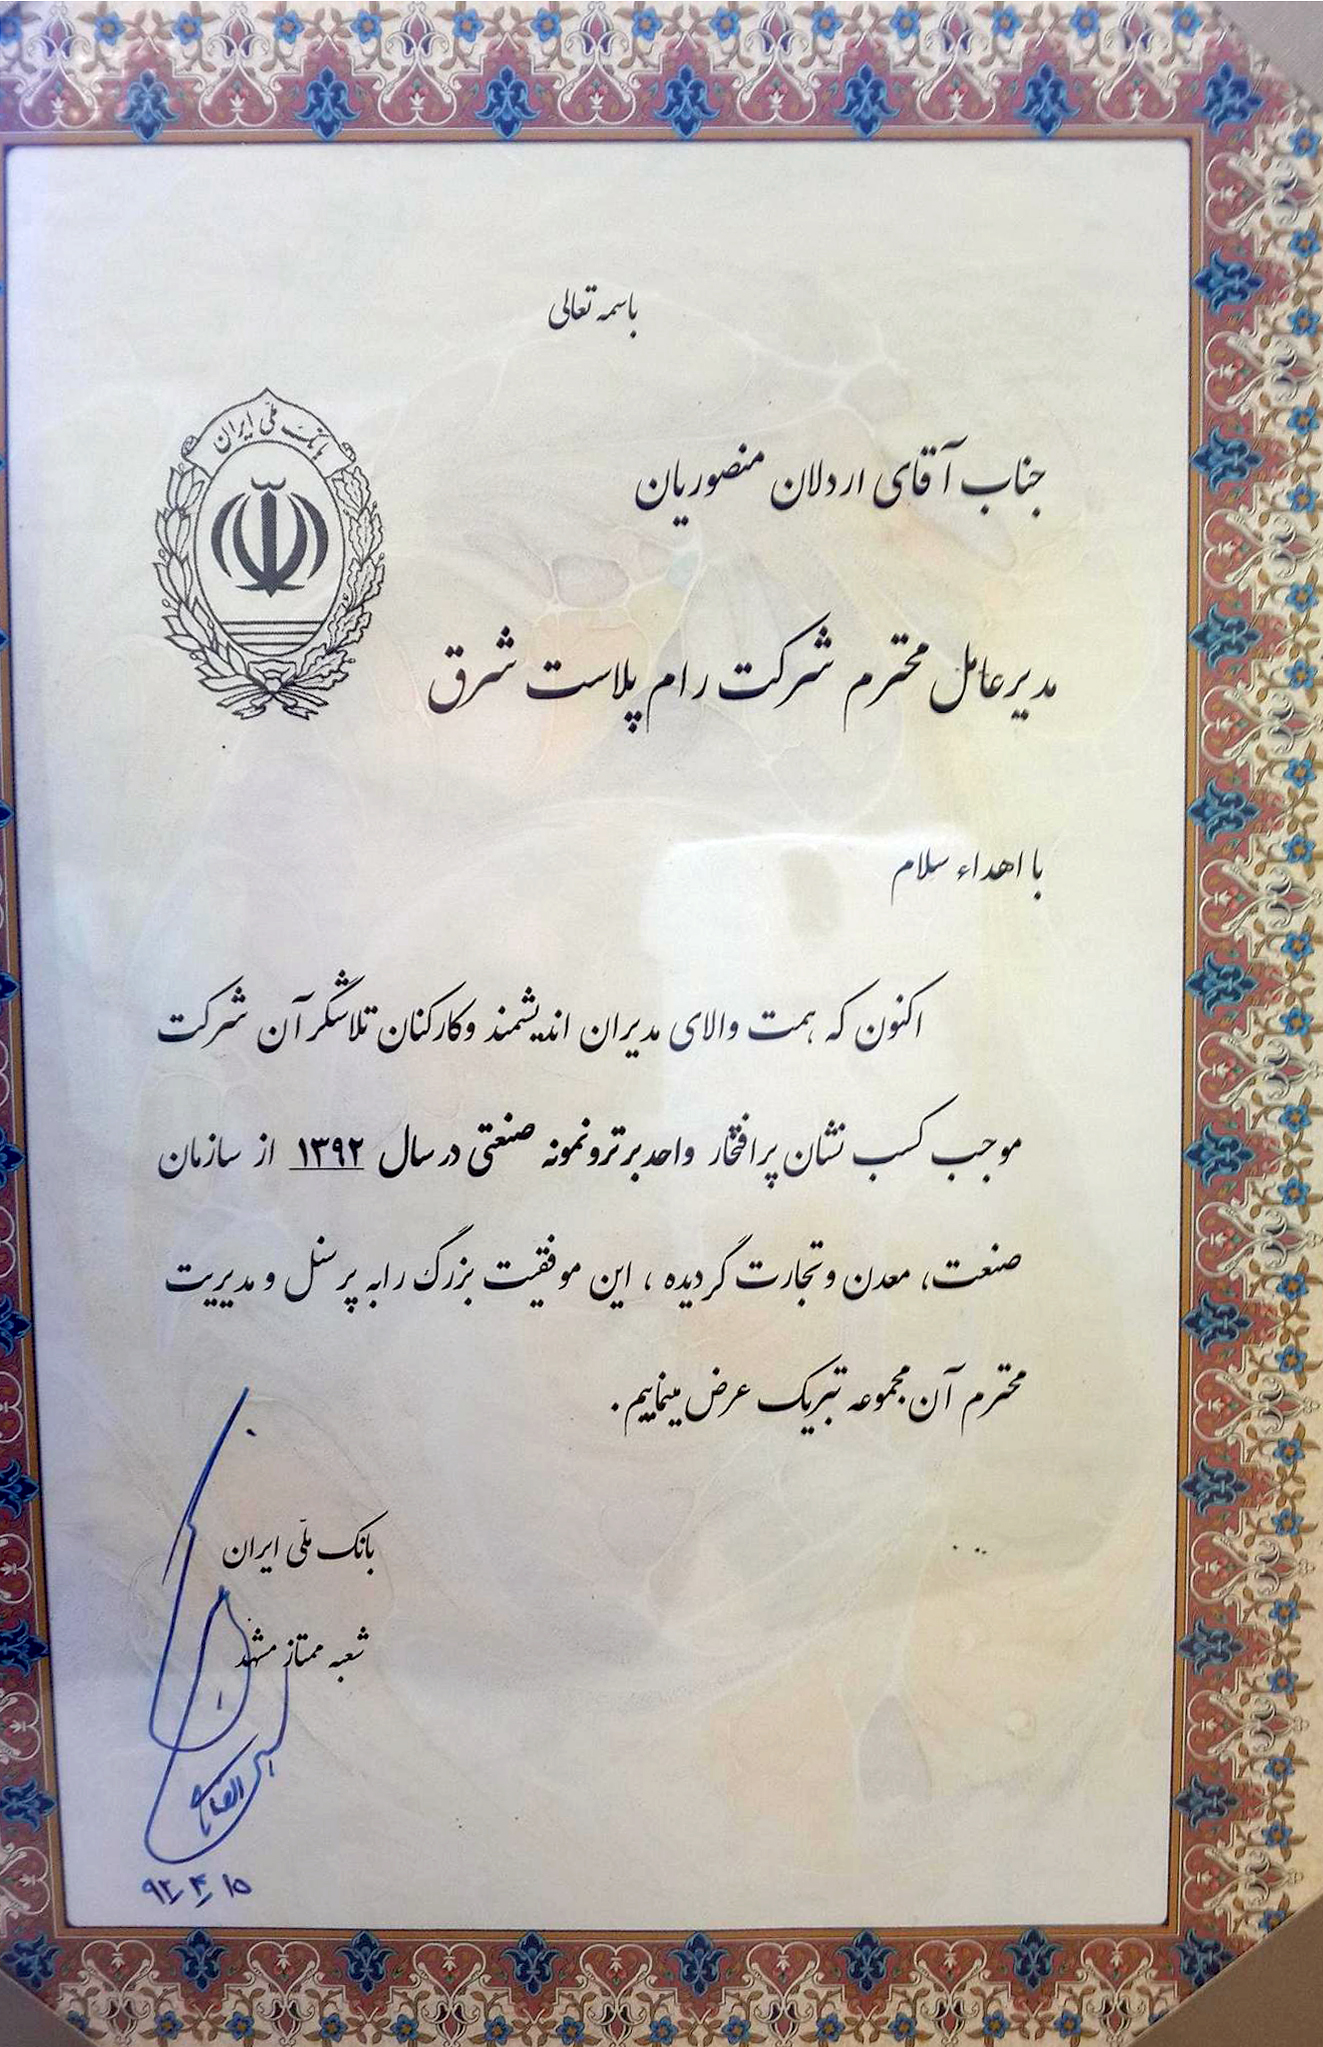 باسمه تعالی
بانک ملّی ایران
جناب آقای اردلان منصوریان
مدیرعامل محترم شرکت رام پلاست شرق
با اهداء سلام
اکنون که همت والای مدیران اندیشمند وکارکنان تلاشگر آن شرکت
موجب کسب نشان پر افتخار واحد برتر ونمونه صنعتی در سال ۱۳۹۲ از سازمان
صنعت، معدن و تجارت گردیده ، این موفقیت بزرگ را به پرسنل و مدیریت
محترم آن مجموعه تبریک عرض مینماییم .
بانک ملّی ایران
شعبه ممتاز مشهد
۹۲/۴/۱۵